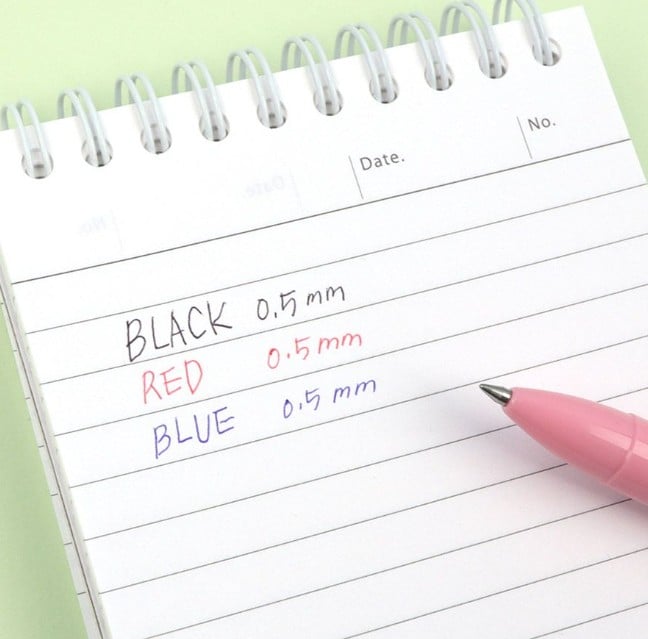 Date. No.
BLACK 0.5 mm
RED 0.5 mm
BLUE 0.5 mm